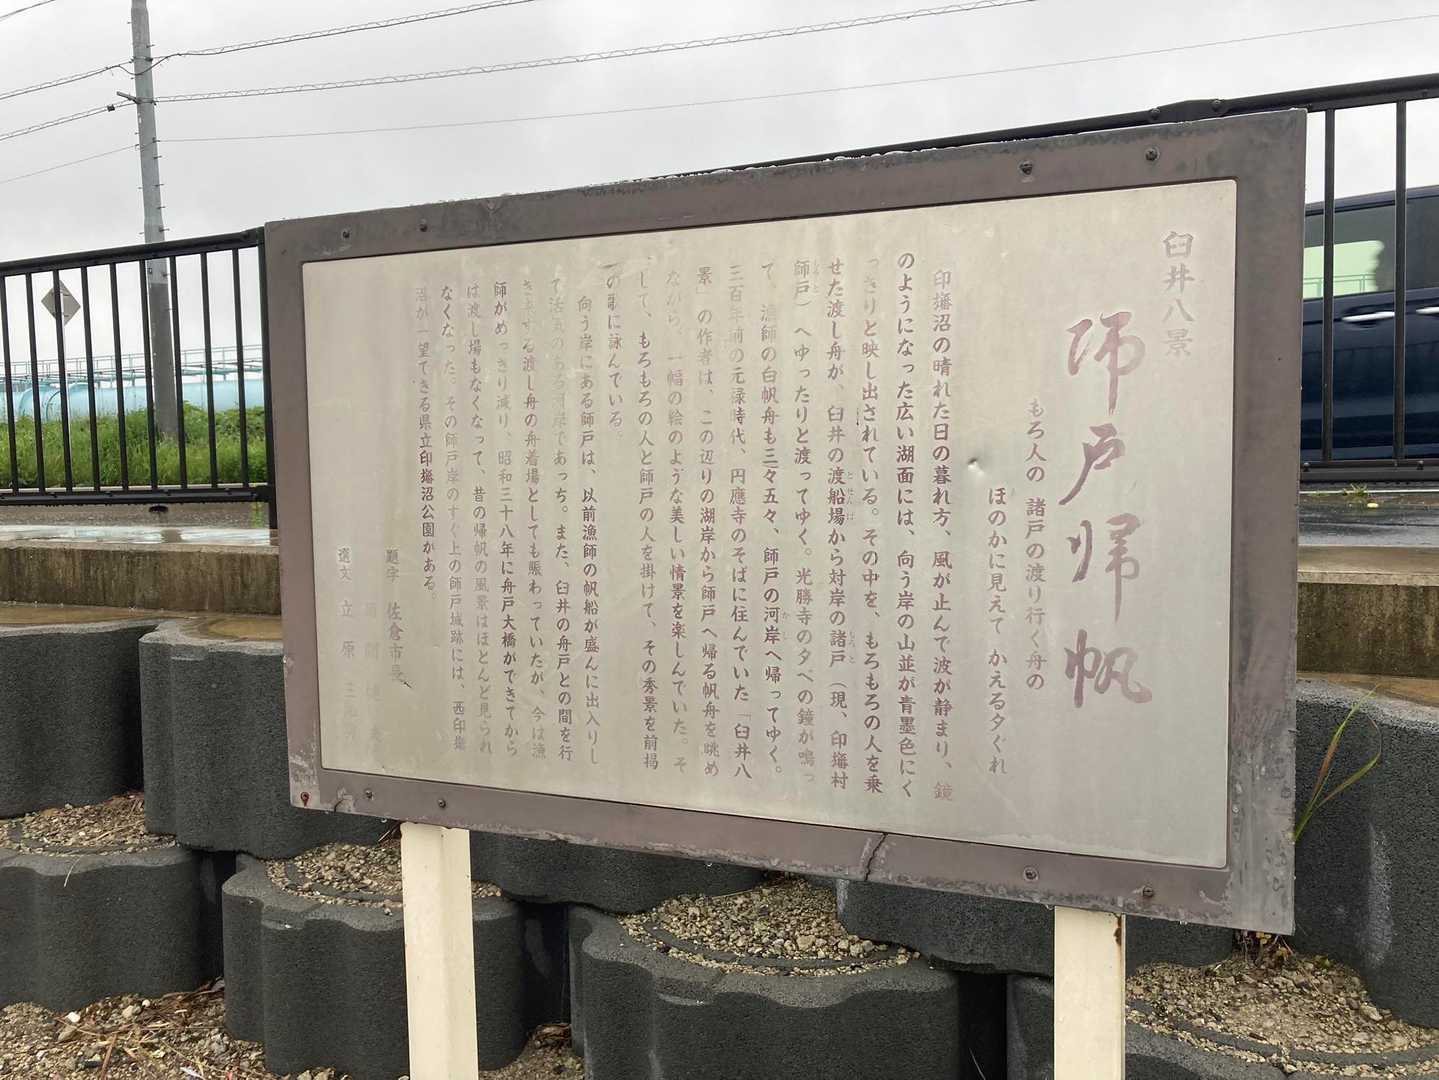 臼井八景
師戸帰帆
もろ人の 諸戸の渡り行く舟の
ほのかに見えて かえる夕ぐれ
印旛沼の晴れた日の暮れ方、風が止んで波が静まり、鏡
のようになった広い湖面には、向う岸の山並が青墨色にく
っきりと映し出されている。その中を、もろもろの人を乗
せた渡し舟が、臼井の渡船場から対岸の諸戸（現、印旛村
師戸）へゆったりと渡ってゆく。光勝寺の夕べの鐘が鳴っ
て、漁師の白帆舟も三々五々、師戸の河岸へ帰ってゆく。
三百年前の元禄時代、円應寺のそばに住んでいた「臼井八
景」の作者は、この辺りの湖岸から師戸へ帰る帆舟を眺め
ながら、一幅の絵のような美しい情景を楽しんでいた。そ
して、もろもろの人と師戸の人を掛けて、その秀景を前掲
の歌に詠んでいる。
向う岸にある師戸は、以前漁師の帆船が盛んに出入りし
て活気のある河岸であっち。また、臼井の舟戸との間を行
き来する渡し舟の舟着場としても賑わっていたが、今は漁
師がめっきり減り、昭和三十八年に舟戸大橋ができてから
は渡し場もなくなって、昔の帰帆の風景はほとんど見られ
なくなった。その師戸岸のすぐ上の師戸城跡には、西印旛
沼が一望できる県立印旛沼公園がある。
題字 佐倉市長
選文 立原